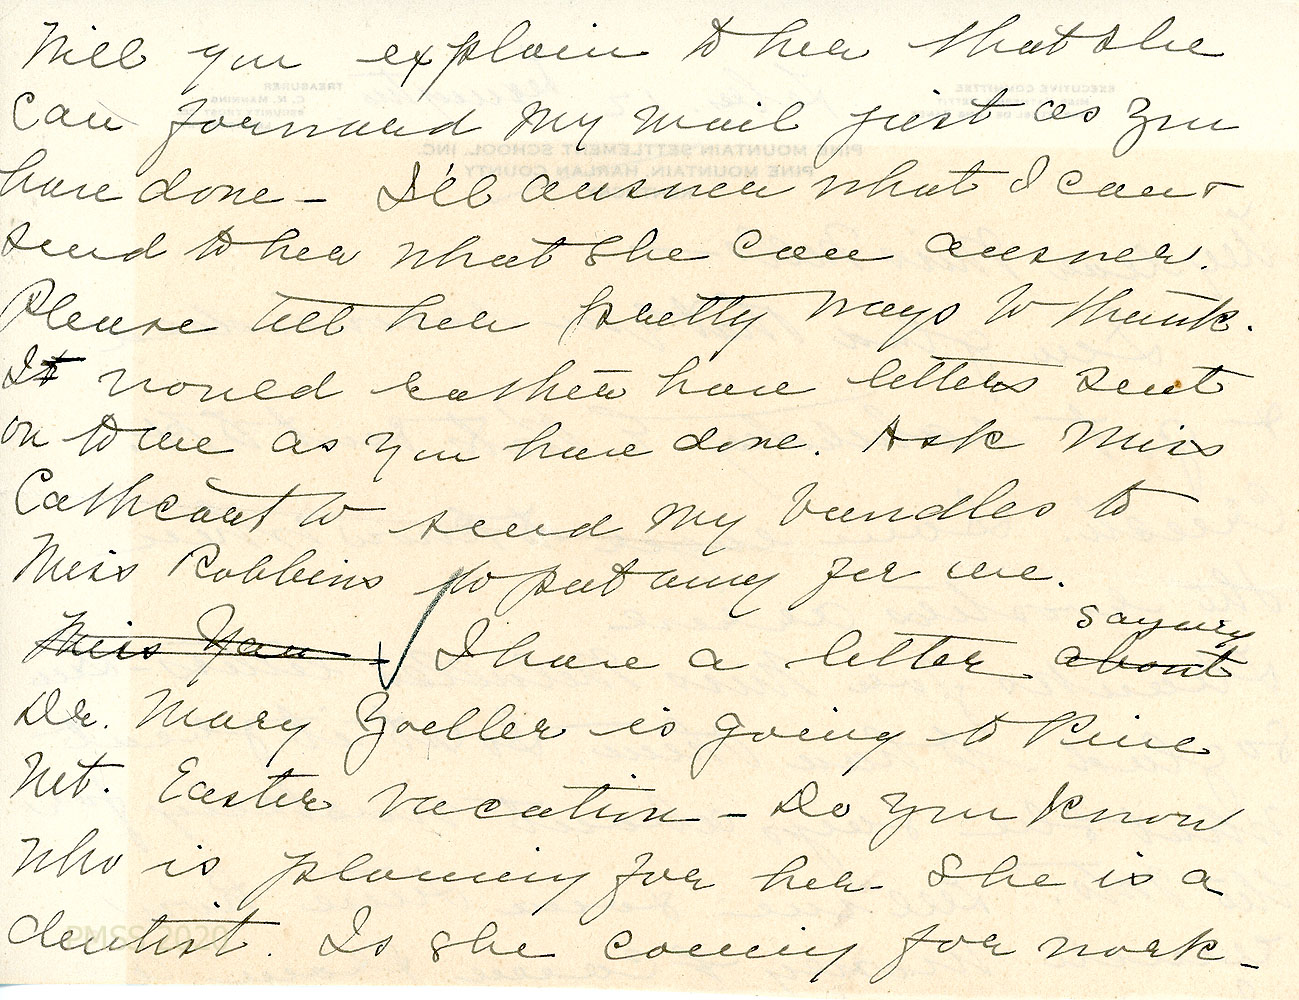 Will you explain to her that she
can forward my mail just as you
have done - I'll answer what I can +
send to her what she can answer.
Please tell her pretty ways to thank.
I would rather have letters sent
on to me as you have done. Ask Miss
Cathcart to send my bundles to
Miss Robbins to put away for me.
Miss Van I have a letter about saying
Dr. Mary Zoeller is going to Pine
Mt. Easter vacation - Do you know
who is planning for her - She is a
dentist. Is she coming for work -
EXECUTIVE COMMITTEE
TREASURER
C. N. MANNING
PINE MOUNTAIN SETTLEMENT SCHOOL INC.
PINE MOUNTAIN, HARLAN COUNTY
PMSS 2020